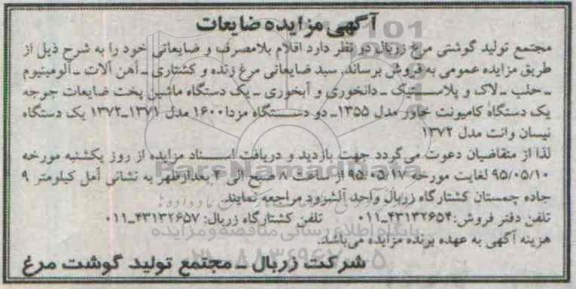 آگهی مزایده ضایعات
مجتمع تولید گوشتی مرغ زربال در نظر دارد اقلام بلامصرف و ضایعاتی خود را به شرح ذیل از
طریق مزایده عمومی به فروش برساند. سبد ضایعاتی مرغ زنده و کشتاری ـ آهن آلات ـ آلومینیوم
ـ حلب ـ لاک و پلاستیک ـ دانخوری و آبخوری ـ یک دستگاه ماشین پخت ضایعات جوجه
یک دستگاه کامیونت خاور مدل ۱۳۵۵ـ دو دستگاه مزدا ۱۶۰۰ مدل ۱۳۷۱ـ۱۳۷۲ یک دستگاه
نیسان وانت مدل ۱۳۷۲
لذا از متقاضیان دعوت می گردد جهت بازدید و دریافت اسناد مزایده از روز یکشنبه مورخه
۹۵/۰۵/۱۰ لغایت مورخه ۹۵/۰۵/۱۷ از ساعت ۸ صبح الی ۴ بعدازظهر به نشانی آمل کیلومتر ۹
جاده چمستان کشتارگاه زربال واحد آلشرود مراجعه نمایند.
تلفن دفتر فروش: ۴۳۱۳۲۶۵۴ـ۰۱۱ تلفن کشتارگاه زربال: ۴۳۱۳۲۶۵۷ـ۰۱۱
هزینه آگهی به عهده برنده مزایده می‌باشد.
شرکت زربال ـ مجتمع تولید گوشت مرغ